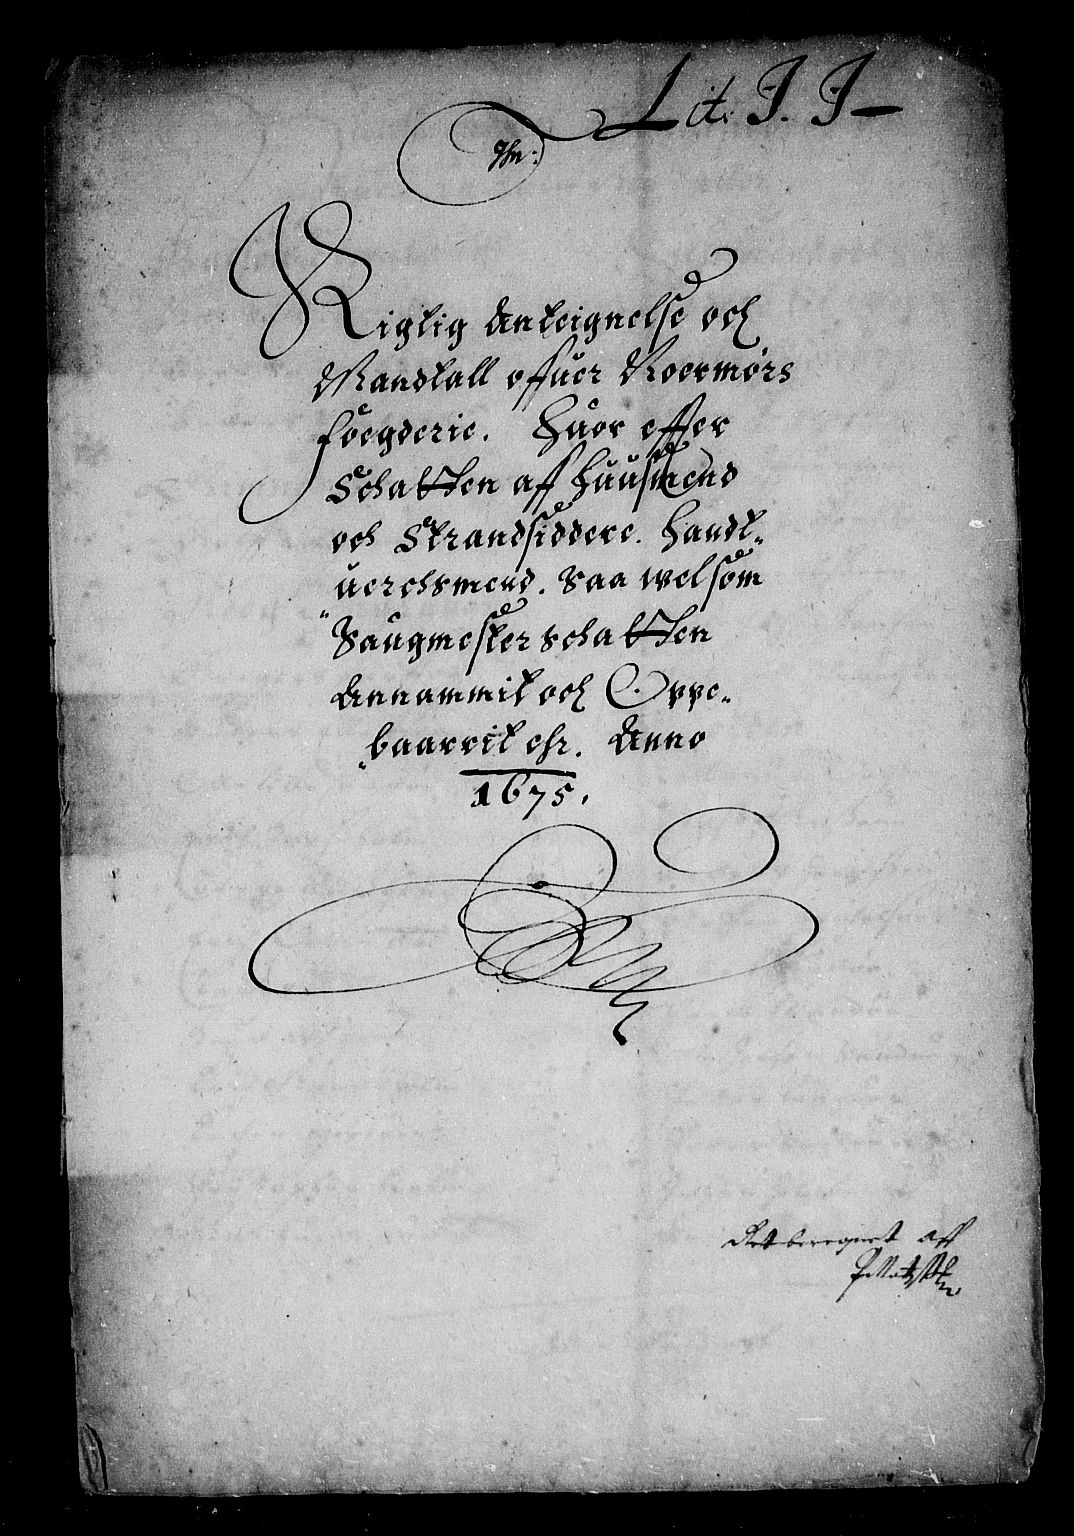 Lit. J. J
Rigtig Anteignelse och
Mandtall offuer Noermørs
foegderie. Huor effter
Schatten aff Huusmend
och Strandsiddere. Handt-
uerchsmend. Saa welsom
Saugmester schatten
Annammit och Oppe-
baarrit ehr. Anno
1675.
Ret beregnet aff